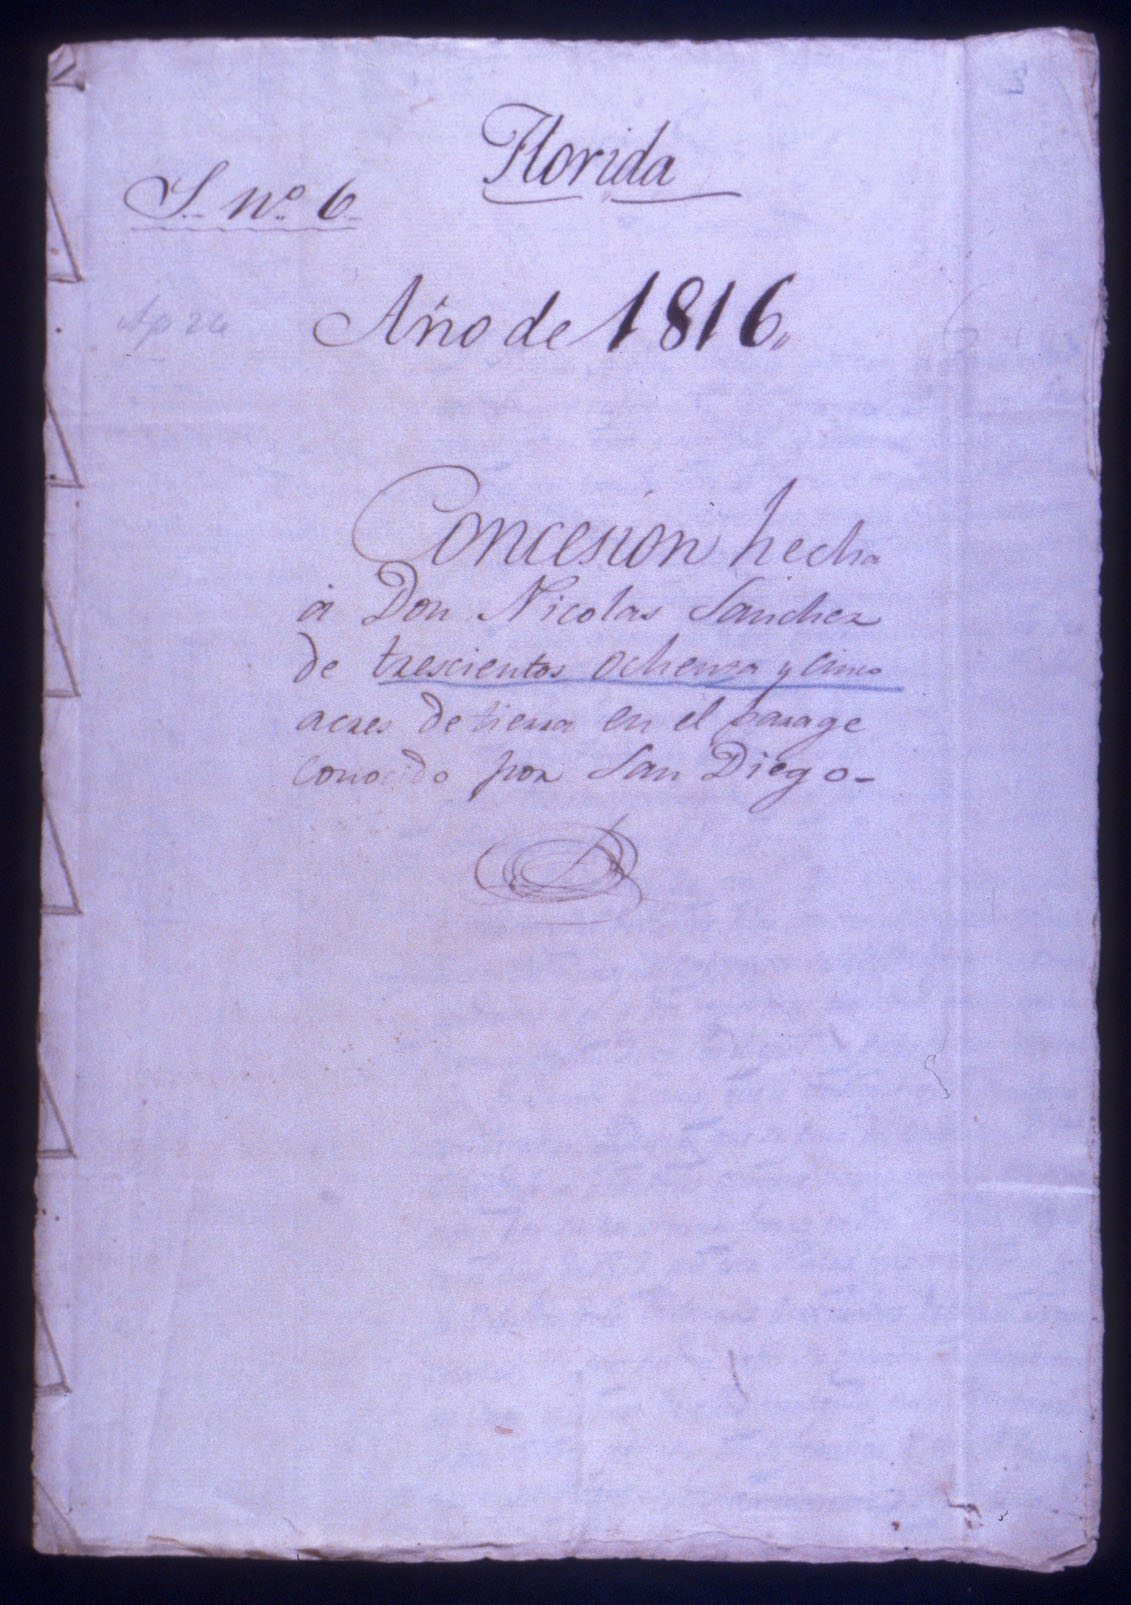 Florida
S. nº 6
Año de 1816
Concesion hecha
á Don Nicolas Sanchez
de trescientos ochenta y cinco
acres de tierra en el parage
conocido por San Diego-